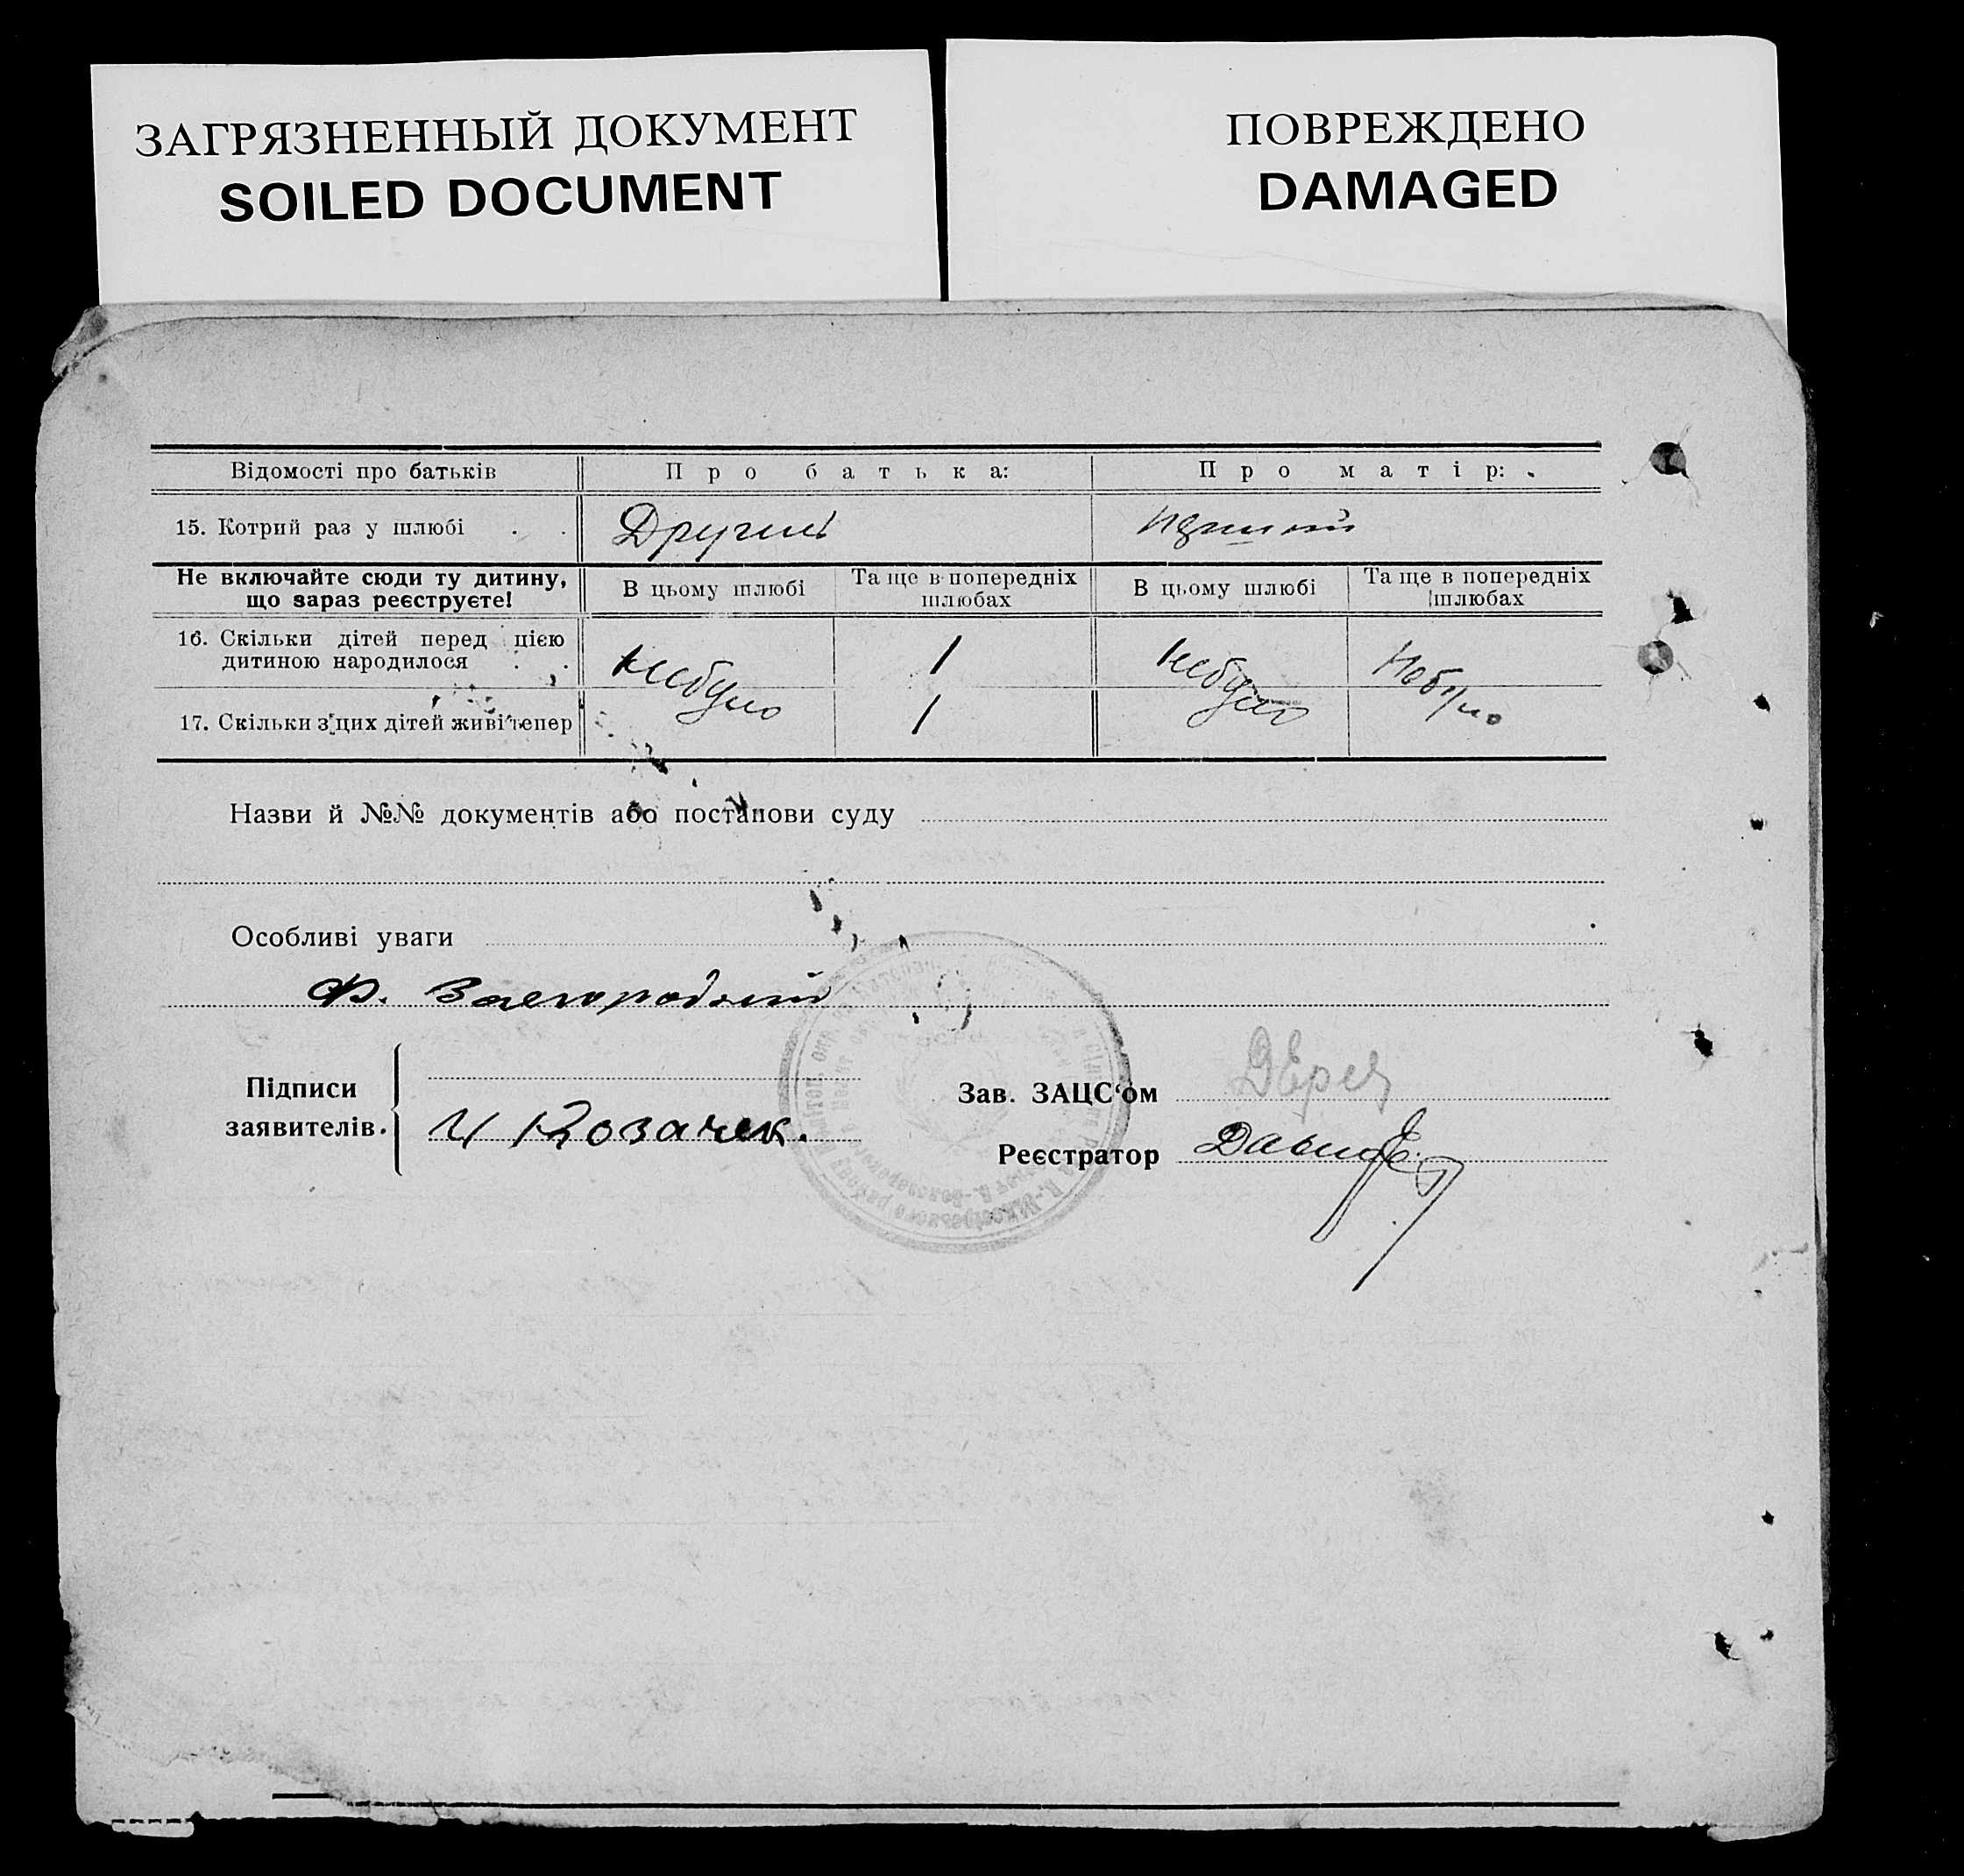 ЗАГРЯЗНЕННЫЙ ДОКУМЕНТ
SOILED DOCUMENT
ПОВРЕЖДЕНО
DAMAGED
Відомості про батьків Про батька: Про матір:
15. Котрий раз у шлюбі . . Другий перший
Не включайте сюди ту дитину, що зараз реєструєте! В цьому шлюбі Та ще в попередніх шлюбах В цьому шлюбі Та ще в попередніх шлюбах
16. Скільки дітей перед цією дитиною народилося . . небуло 1 небуло небуло
17. Скільки з цих дітей живі тепер 1
Назви й №№ документів або постанови суду
Особливі уваги
Ф. Загородний
Підписи заявителів. И Козачек.
Зав. ЗАЦС'ом
Реєстратор